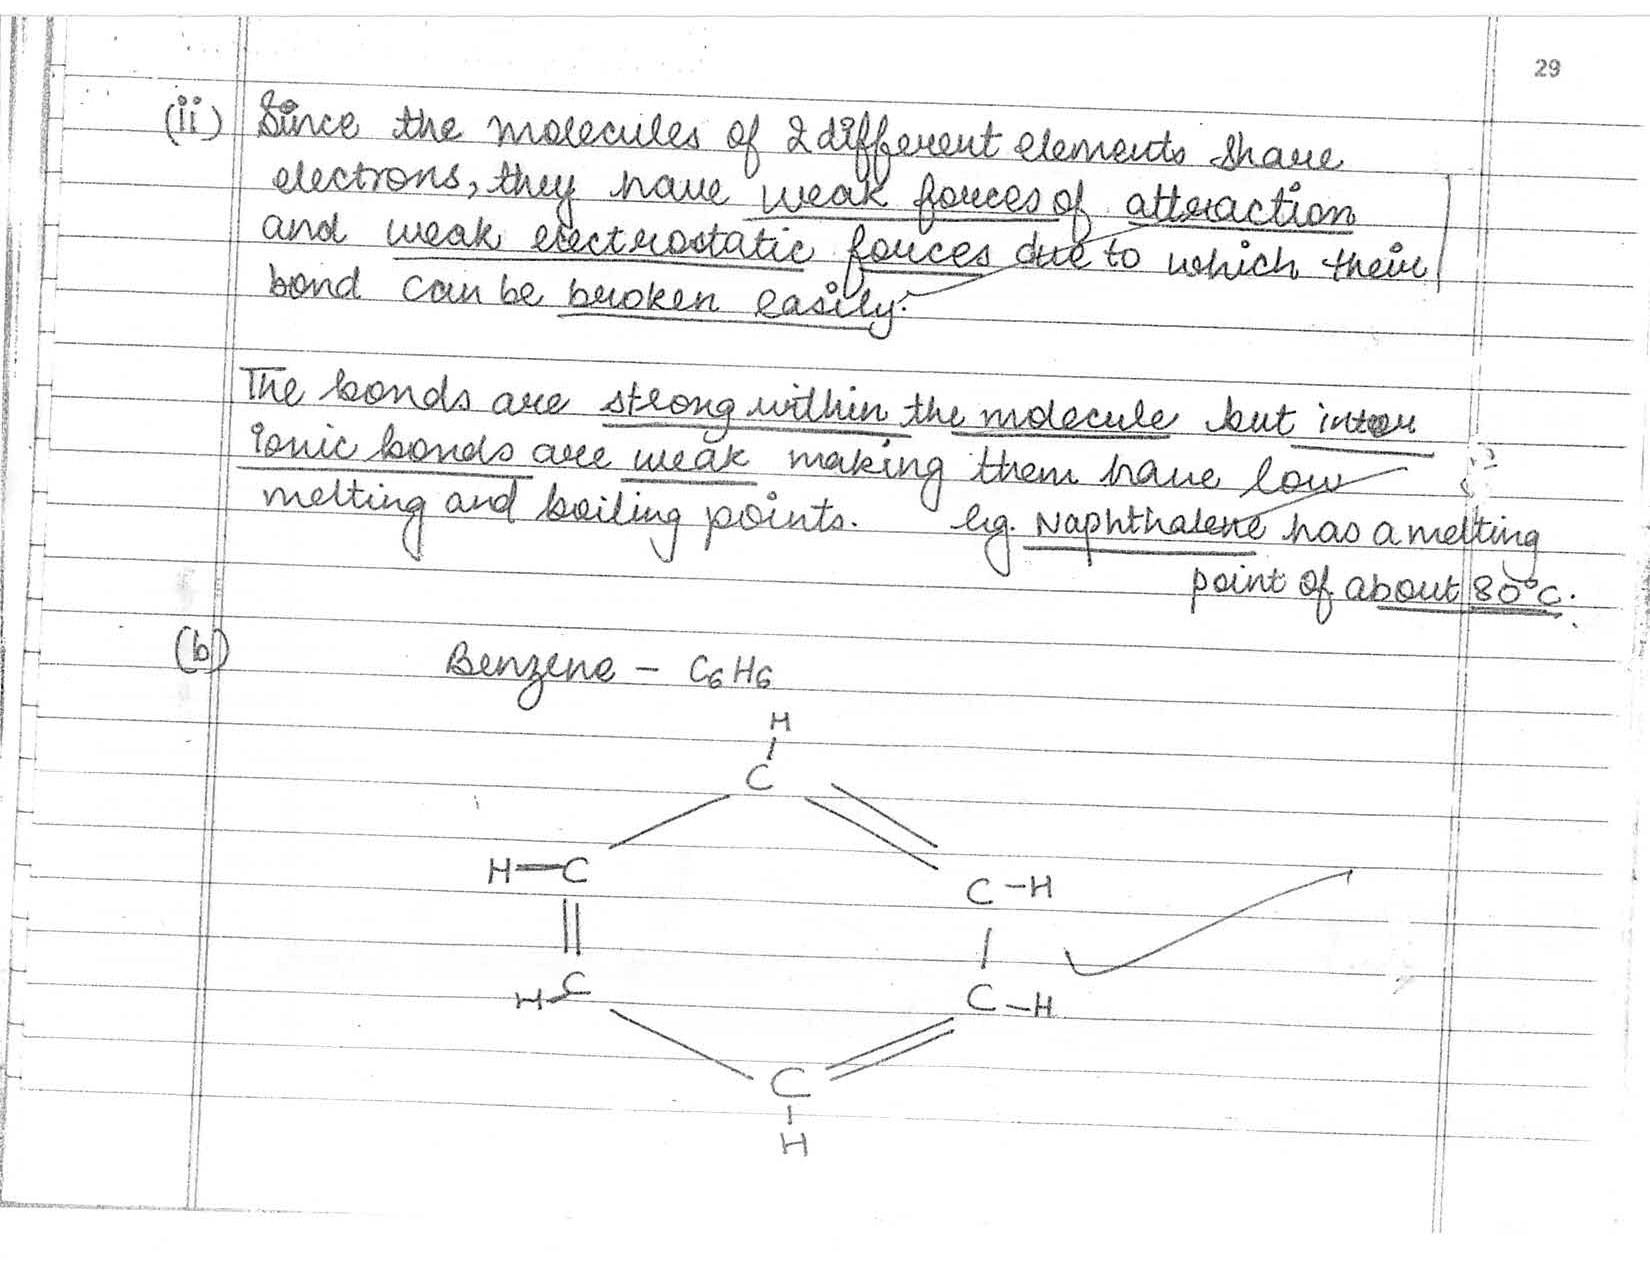 29
(ii) Since the molecules of 2 different elements share
electrons, they have weak forces of attraction
and weak electrostatic forces due to which their
bond can be broken easily.
The bonds are strong within the molecule but inter
ionic bonds are weak making them have low
melting and boiling points. eg. Naphthalene has a melting
point of about 80°C.
(b) Benzene - C6H6
H
C
H-C
C-H
H-C
C-H
C
H